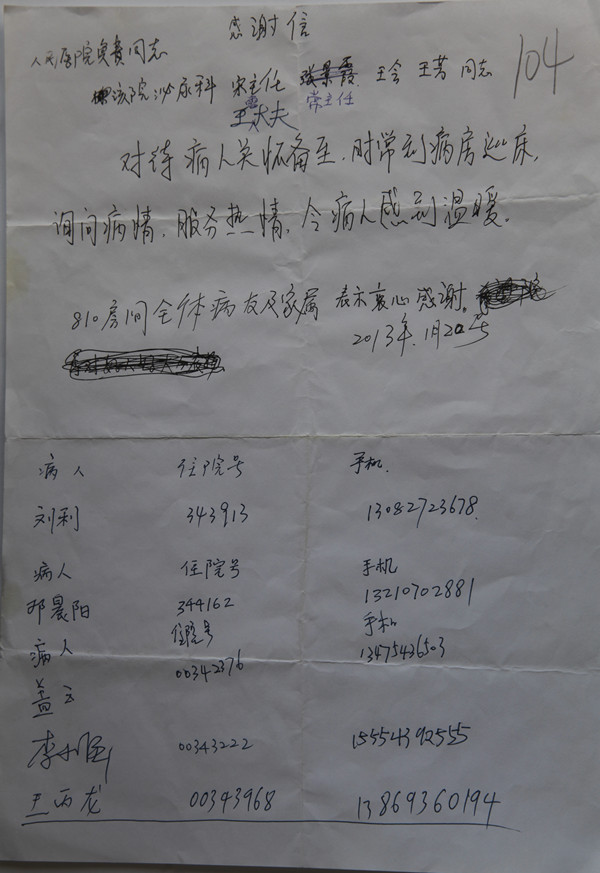 感谢信
人民医院负责同志
104
该院泌尿科 宋主任 张景霞 王会 王芳 同志
王大夫 常主任
对待病人关怀备至.时常到病房巡床,
询问病情.服务热情.令病人感到温暖。
810房间全体病友及家属 表示衷心感谢。
2013年.1月20号
病人 住院号 手机.
刘利 343913 13082723678.
病人 住院号 手机
邓晨阳 344162 13210702881
病人 住院号 手机
盖云 00342376 13475436503
00343222 15554392555
王丙龙 00343968 13869360194